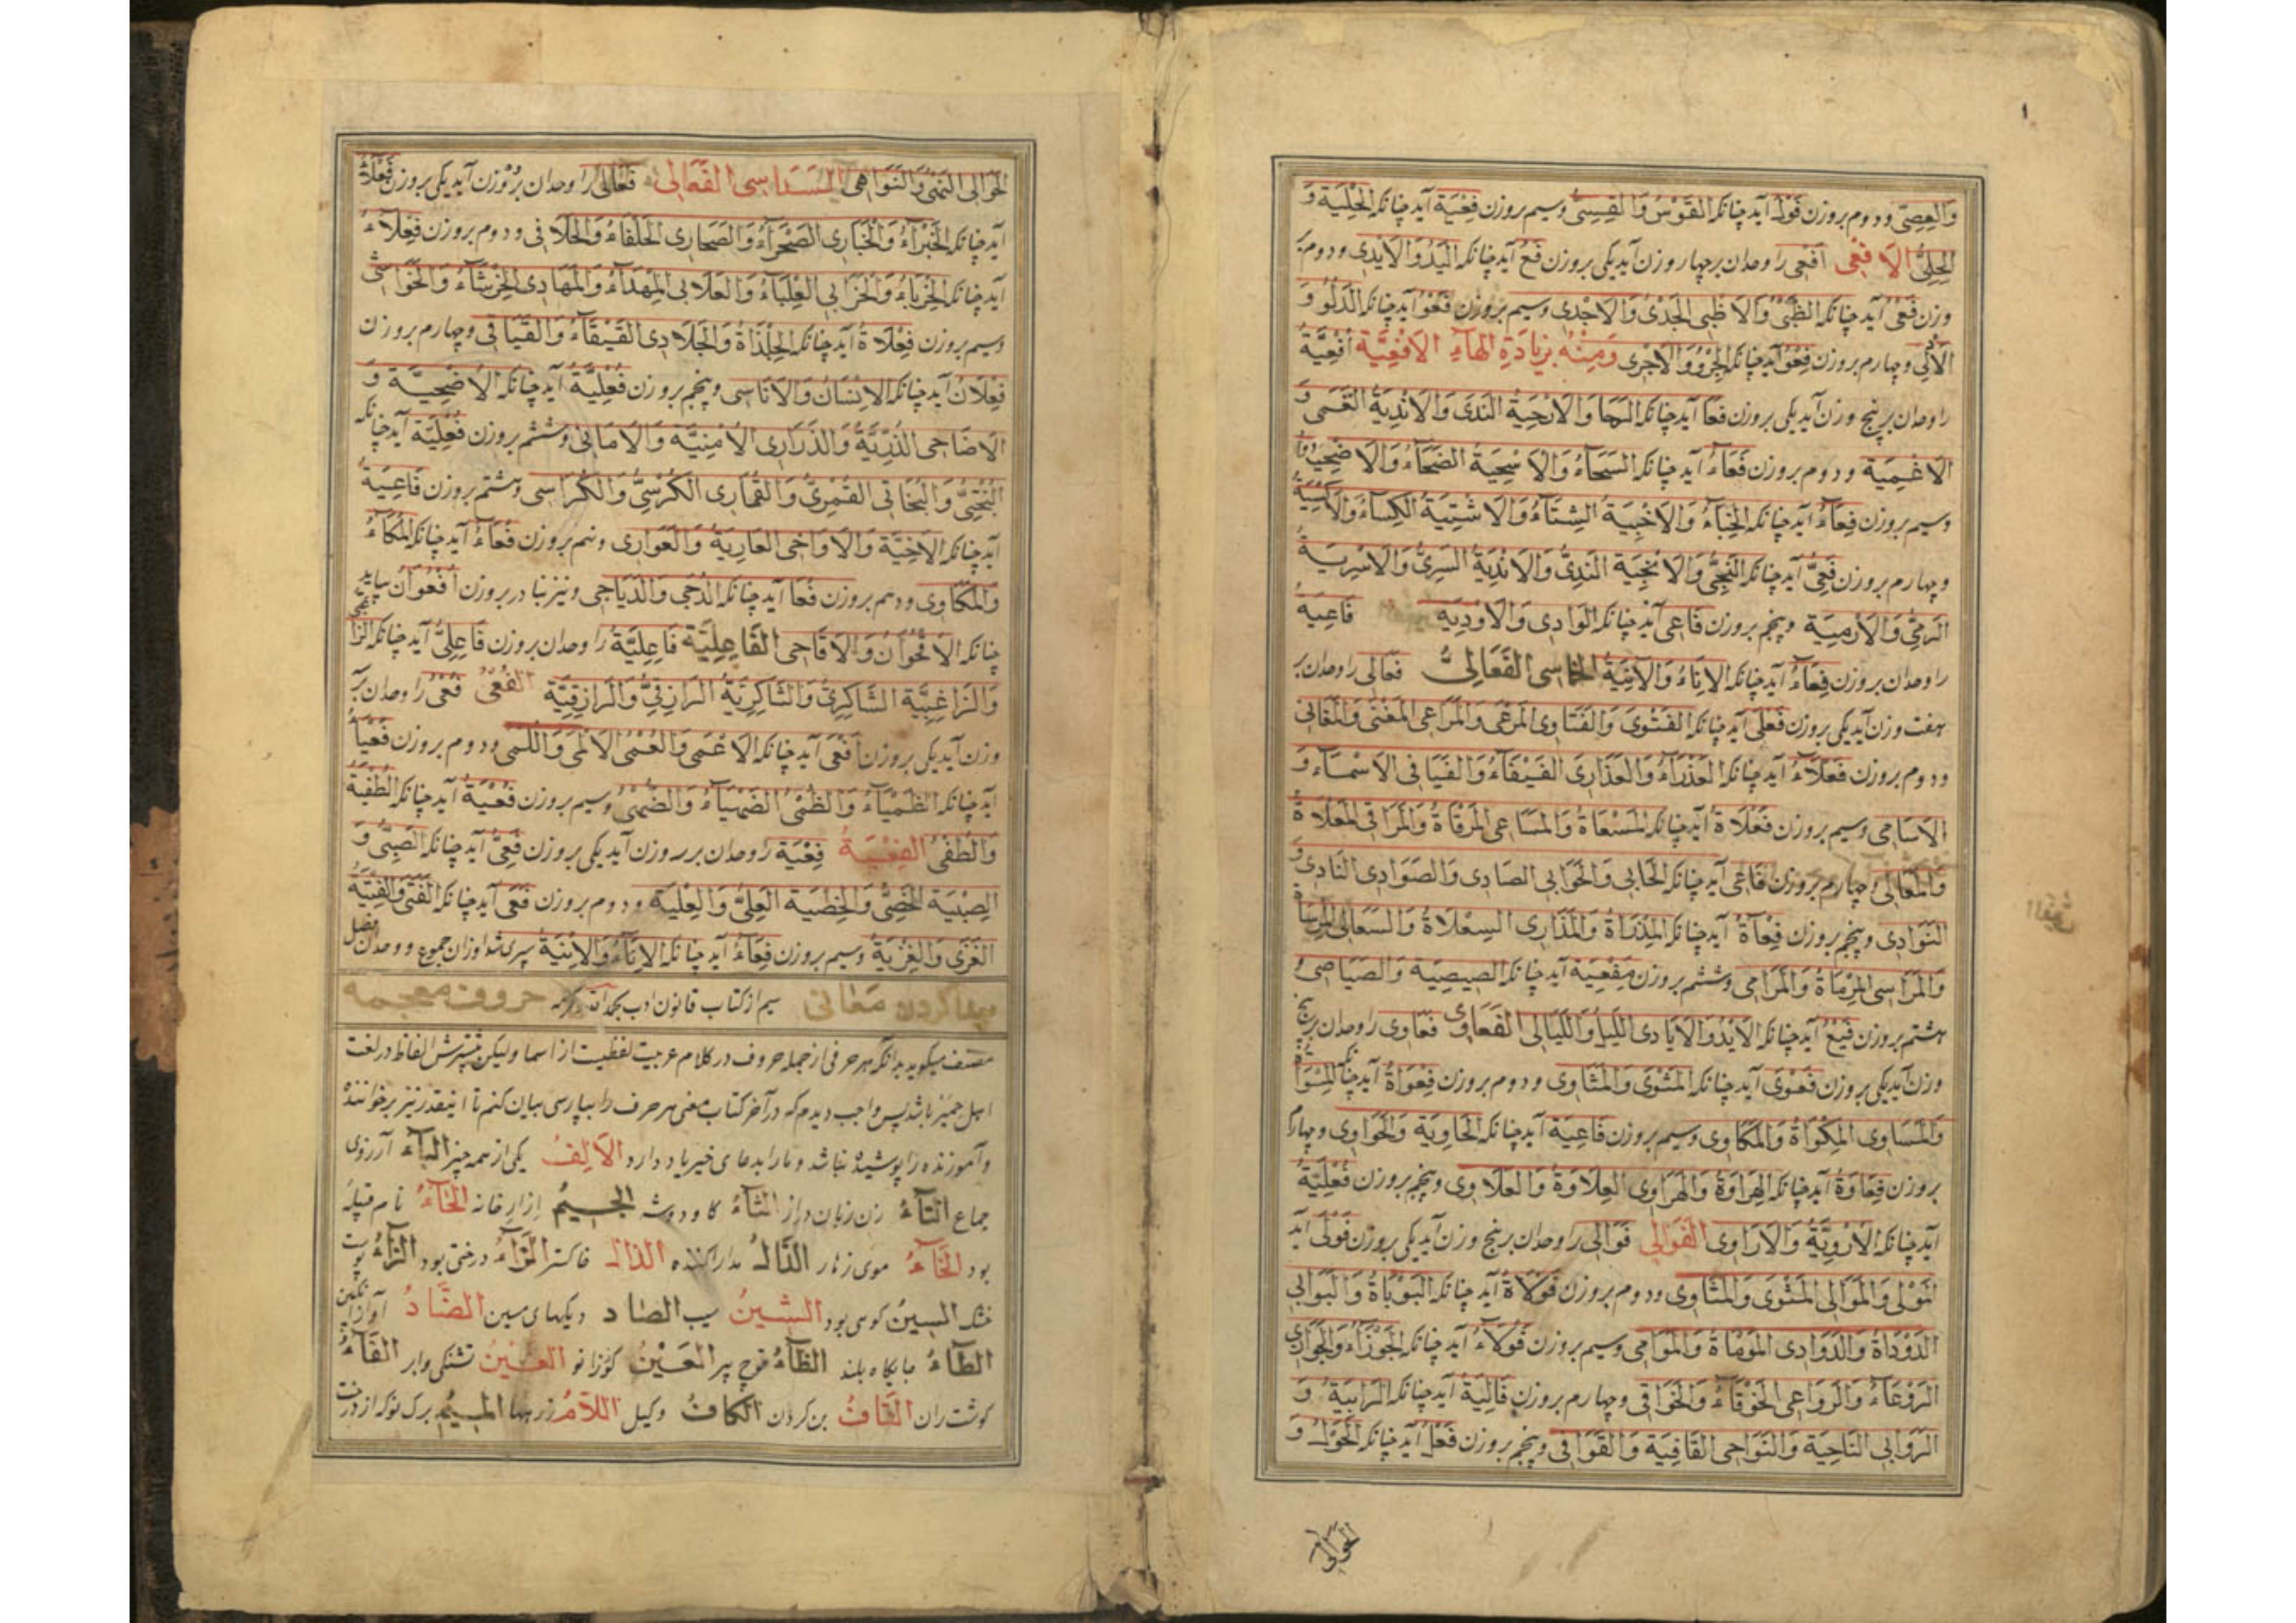 ۱
وَالعِصِیّ و دوم بروزن فَوْلٌ آید چنانکه القَوْسُ وَالقِسِیُّ وسیم بروزن فِعْیَة آید چنانکه الحِلْیَة وَ
الحِلِیُّ الاَفْعِی اَفْعِی را وحدان بر چهار وزن آید یکی بروزن فَعٌ آید چنانکه الیَدُ وَالاَیْدِی و دوم بر
وزن فَعْیٌ آید چنانکه الظَبْیُ وَالاَظْبِی الجَدْیُ وَالاَجْدِی وسیم بروزن فَعْوٌ آید چنانکه الدَلْوُ وَ
الاَدْلِی وچهارم بروزن فِعْوٌ آید چنانکه الجِرْوُ وَالاَجْرِی وَمِنْهُ بِزِیَادَةِ الهَآءِ الاَفْعِیَّة اَفْعِیَّةُ
را وحدان بر پنج وزن آید یکی بروزن فَعًا آید چنانکه الرَحَا وَالاَرْحِیَةُ النَدَی وَالاَنْدِیَةُ العَمَی وَ
الاَعْمِیَة و دوم بروزن فَعَاءٌ آید چنانکه السَحَاءُ وَالاَسْحِیَةُ الضَحَاءُ وَالاَضْحِیَةُ
وسیم بروزن فِعَاءٌ آید چنانکه الخِبَآءُ وَالاَخْبِیَةُ الشِتَآءُ وَالاَشْتِیَةُ الکِسَاءُ وَالاَکْسِیَةُ
وچهارم بروزن فَعِیٌّ آید چنانکه النَجِیُّ وَالاَنْجِیَة النَدِیُّ وَالاَنْدِیَةُ السَرِیُّ وَالاَسْرِیَةُ
الرَمِیُّ وَالاَرْمِیَة وپنجم بروزن فَاعِی آید چنانکه الوَادِی وَالاَوْدِیَه فَاعِیَةُ
را وحدان بروزن فِعَآءٌ آید چنانکه الاِنَاءُ وَالآنِیَةُ الخماسی الفَعَالِیُّ فَعَالَی را وحدان بر
هفت وزن آید یکی بروزن فَعْلَی آید چنانکه الفَتْوَی وَالفَتَاوِی المَرْعَی وَالمَرَاعِی المَغْنَی وَالمَغَانِی
و دوم بروزن فَعْلَآءُ آید چنانکه العَذْرَاءُ وَالعَذَارِی الفَیْفَآءُ وَالفَیَافِی الاَسْمَآءُ وَ
الاَسَامِی وسیم بروزن فَعْلَاةٌ آید چنانکه المَسْعَاةُ وَالمَسَاعِی المَرْقَاةُ وَالمَرَاقِی المَعْلَاةُ
وَالمَعَالِی وچهارم بروزن فَاعِی آید چنانکه الخَابِی وَالخَوَابِی الصَادِی وَالصَوَادِی النَادِی وَ
النَوَادِی وپنجم بروزن فِعْآةٌ آید چنانکه المِذْرَاةُ وَالمَذَارِی السِعْلَاةُ وَالسَعَالِی المِرْسَاةُ
وَالمَرَاسِی المِرْمَاةُ وَالمَرَامِی وششم بروزن مَفْعِیَة آید چنانکه الصِیصِیَة وَالصَیَاصِی وَ
هشتم بروزن فَیْعٌ آید چنانکه الاَیْدُ وَالاَیَادِی اللَیلُ وَاللَیَالِی الفَعَاوِی فَعَاوِی را وحدان بر پنج
وزن آید یکی بروزن فَعْوَی آید چنانکه المَثْوَی وَالمَثَاوِی و دوم بروزن فِعْوَاةٌ آید چنانکه المِسْوَاةُ
وَالمَسَاوِی المِکْوَاةُ وَالمَکَاوِی وسیم بروزن فَاعِیَة آید چنانکه الحَاوِیَة وَالحَوَاوِی وچهارم
بروزن فِعَاوَةٌ آید چنانکه الهِرَاوَةُ وَالهَرَاوِی العِلَاوَةُ وَالعَلَاوِی وپنجم بروزن فُعْلِیَّةٌ
آید چنانکه الاُرْوِیَّةُ وَالاَرَاوِی الفَوَالِی فَوَالِی را وحدان بر پنج وزن آید یکی بروزن فَوْلَی آید
المَوْلَی وَالمَوَالِی المَثْوَی وَالمَثَاوِی و دوم بروزن فَوْلَاةٌ آید چنانکه البَوْبَاةُ وَالبَوَابِی
الدَوْدَاةُ وَالدَوَادِی المَوْمَاةُ وَالمَوَامِی وسیم بروزن فَوْلَآءُ آید چنانکه الجَوْزَآءُ وَالجَوَازِی
الرَوْعَآءُ وَالرَوَاعِی الخَوْقَآءُ وَالخَوَاقِی وچهارم بروزن فَالِیَةٌ آید چنانکه الرَابِیَةُ وَ
الرَوَابِی النَاحِیَة وَالنَوَاحِی القَافِیَة وَالقَوَافِی وپنجم بروزن فَعْلٌ آید چنانکه الحَوْلُ وَ
الحوالی
الحَوَالِی النَهْیُ وَالنَوَاهِی السداسی الفَعَالِی فَعَالِیُّ را وحدان بر وزن آید یکی بروزن فَعْلَآءُ
آید چنانکه الخَبْرَآءُ وَالخَبَارِی الصَحْرَآءُ وَالصَحَارِی الحَلْفَاءُ وَالحَلَافِی و دوم بروزن فِعْلَآءُ
آید چنانکه الحِرْبَاءُ وَالحَرَابِی العِلْبَآءُ وَالعَلَابِی المِهْدَآءُ وَالمَهَادِی الخِرْشَآءُ وَالخَرَاشِی
وسیم بروزن فِعْلَاةٌ آید چنانکه الجِلْذَاةُ وَالجَلَاذِی القِیْقَآءُ وَالقَیَاقِی وچهارم بروزن
فِعْلَانٌ آید چنانکه الاِنْسَانُ وَالاَنَاسِی وپنجم بروزن فُعْلِیَّةٌ آید چنانکه الاُضْحِیَّة وَ
الاَضَاحِی الذُرِّیَّةُ وَالذَرَارِی الاُمْنِیَّة وَالاَمَانِی وششم بروزن فُعْلِیَّة آید چنانکه
البُخْتِیُّ وَالبَخَاتِی القُمْرِیُّ وَالقَمَارِی الکُرْسِیُّ وَالکَرَاسِی وهشتم بروزن فَاعِیَةُ
آید چنانکه الآخِیَّة وَالاَوَاخِی العَارِیَةُ وَالعَوَارِی ونهم بروزن فُعَاءٌ آید چنانکه المُکَآءُ
وَالمَکَاوِی و دهم بروزن فُعَا آید چنانکه الدُجَی وَالدَیَاجِی ونیز بنا در بروزن اُفْعُوَانٌ بیاید
چنانکه الاُقْحُوَانُ وَالاَقَاحِی الفَاعِلِیَّة فَاعِلِیَّةُ را وحدان بروزن فَاعِلِیٌّ آید چنانکه الزاغبی
وَالزَاغِبِیَّة الشَاکِرِیُّ وَالشَاکِرِیَّةُ الرَازِقِیُّ وَالرَازِقِیَّة الفُعْیُ فُعْیٌ را وحدان بر
وزن آید یکی بروزن اَفْعَی آید چنانکه الاَعْمَی وَالعُمْیُ الاَلْمَی وَاللُمْیُ و دوم بروزن فَعْیَآءُ
آید چنانکه الظَمْیَاءُ وَالظُمْیُ الضَهْیَاءُ وَالضُهْیُ وسیم بروزن فُعْیَةٌ آید چنانکه الطُفْیَةُ
وَالطُفْیُ الفِعْیَةُ فِعْیَة را وحدان بر سه وزن آید یکی بروزن فَعِیٌّ آید چنانکه الصَبِیُّ وَ
الصِبْیَة الخَصِیُّ وَالخِصْیَة العَلِیُّ وَالعِلْیَة و دوم بروزن فَعَی آید چنانکه الفَتَی وَالفِتْیَةُ
الغَزَی وَالغِزْیَةُ وسیم بروزن فِعَآءٌ آید چنانکه الاِنَآءُ وَالاِنْیَةُ سپری شد اوزان جموع و وحدان فصل
سیم از کتاب قانون ادب بحمد الله پیدا کردن معانی حروف معجمه
مصنف میکوید بدانکه هر حرفی از جمله حروف در کلام عربیت لفظیست از اسما ولیکن الفاظ در لغت
اهل حمیر باشد پس واجب دیدم که در آخر کتاب معنی هر حرف را بپارسی بیان کنم تا اینقدر نیز بر خواننده
و آموزنده را پوشیده نباشد و ما را بدعای خیر یاد دارد الاَلِفُ یکی از همه چیز البَآءُ آرزوی
جماع التَآءُ زن زبان دراز الثَآءُ کاو دوشه الجِیمُ ازار خانه الحَآءُ نام قبیله
بود الخَآءُ موی زهار الدَالُ مدارا کننده الذالُ خاکستر الرَآءُ درختی بود الزَآءُ پوست
خشک السِینُ کوسی بود الشِینُ سیب الصاد دیکهای مسین الضَادُ آواز
الطَآءُ جایکاه بلند الظَآءُ قوچ پیر العَیْنُ کوزانو الغَیْنُ تشنکی وابر الفَآءُ
کوشت ران القَافُ بن کردن الکَافُ وکیل اللَامُ زرهها المِیمُ برک نو که از درخت